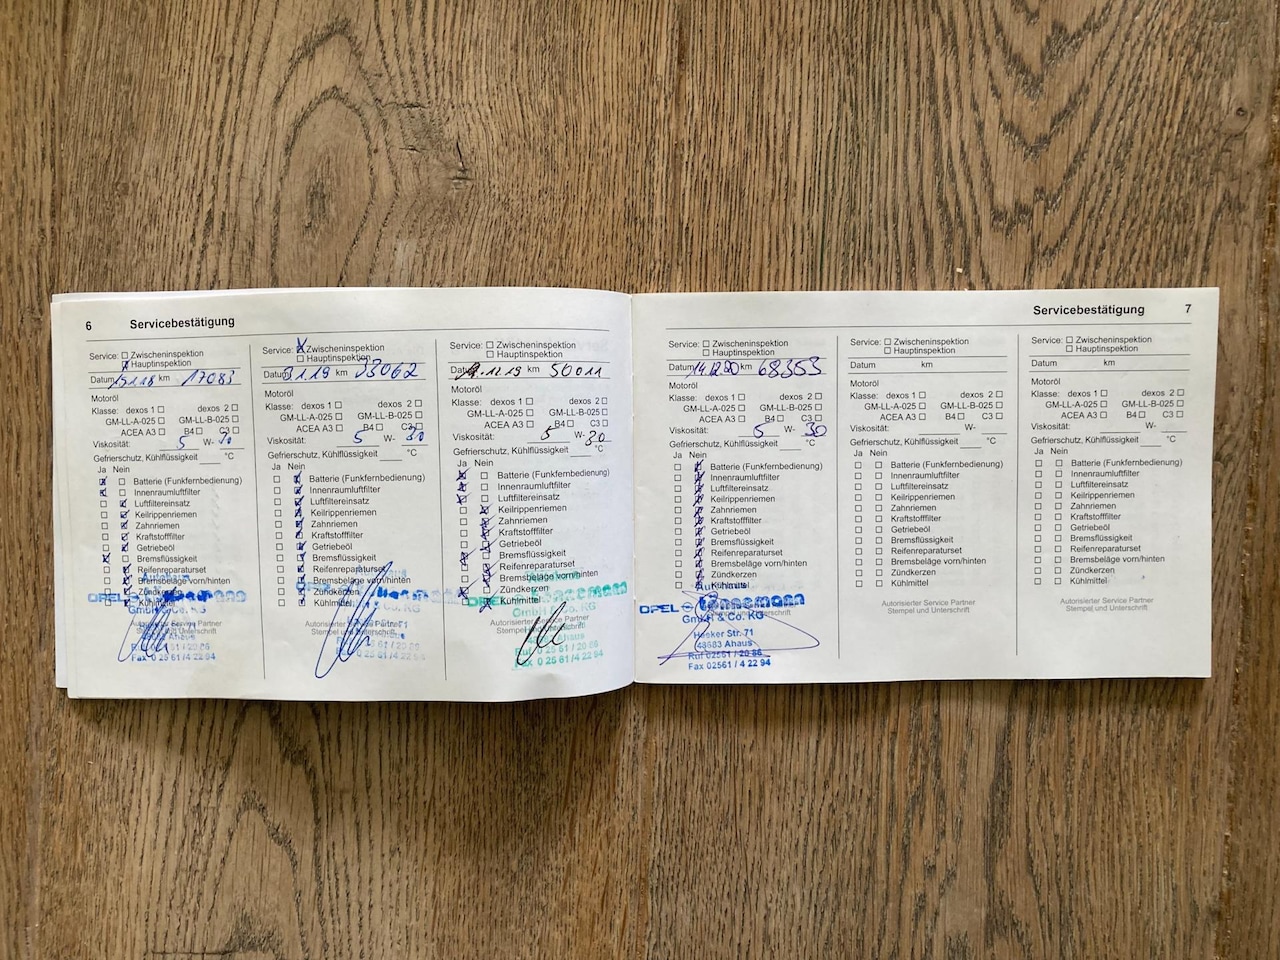 6 Servicebestätigung
Service: Zwischeninspektion
Hauptinspektion
Datum 15.1.18 km 17083
Motoröl
Klasse: dexos 1 dexos 2
GM-LL-A-025 GM-LL-B-025
ACEA A3 B4 C3
Viskosität: 5 W- 30
Gefrierschutz, Kühlflüssigkeit °C
Ja Nein
Batterie (Funkfernbedienung)
Innenraumluftfilter
Luftfiltereinsatz
Keilrippenriemen
Zahnriemen
Kraftstofffilter
Getriebeöl
Bremsflüssigkeit
Reifenreparaturset
Bremsbeläge vorn/hinten
Zündkerzen
Kühlmittel
Autohaus
OPEL
GmbH & Co. KG
Autorisierter Service Partner
Stempel und Unterschrift
Ahaus
Ruf 0 25 61 / 20 86
Fax 0 25 61 / 4 22 94
Service: Zwischeninspektion
Hauptinspektion
Datum 1.19 km 33062
Motoröl
Klasse: dexos 1 dexos 2
GM-LL-A-025 GM-LL-B-025
ACEA A3 B4 C3
Viskosität: 5 W- 30
Gefrierschutz, Kühlflüssigkeit °C
Ja Nein
Batterie (Funkfernbedienung)
Innenraumluftfilter
Luftfiltereinsatz
Keilrippenriemen
Zahnriemen
Kraftstofffilter
Getriebeöl
Bremsflüssigkeit
Reifenreparaturset
Bremsbeläge vorn/hinten
Zündkerzen
Kühlmittel
GmbH & Co. KG
Autorisierter Service Partner
Stempel und Unterschrift
Ahaus
Service: Zwischeninspektion
Hauptinspektion
Datum 12.19 km 50011
Motoröl
Klasse: dexos 1 dexos 2
GM-LL-A-025 GM-LL-B-025
ACEA A3 B4 C3
Viskosität: 5 W- 30
Gefrierschutz, Kühlflüssigkeit °C
Ja Nein
Batterie (Funkfernbedienung)
Innenraumluftfilter
Luftfiltereinsatz
Keilrippenriemen
Zahnriemen
Kraftstofffilter
Getriebeöl
Bremsflüssigkeit
Reifenreparaturset
Bremsbeläge vorn/hinten
Zündkerzen
Kühlmittel
OPEL
GmbH & Co. KG
Autorisierter Service Partner
Stempel und Unterschrift
Ahaus
Ruf 0 25 61 / 20 86
Fax 0 25 61 / 4 22 94
Servicebestätigung 7
Service: Zwischeninspektion
Hauptinspektion
Datum 14.12.20 km 68353
Motoröl
Klasse: dexos 1 dexos 2
GM-LL-A-025 GM-LL-B-025
ACEA A3 B4 C3
Viskosität: 5 W- 30
Gefrierschutz, Kühlflüssigkeit °C
Ja Nein
Batterie (Funkfernbedienung)
Innenraumluftfilter
Luftfiltereinsatz
Keilrippenriemen
Zahnriemen
Kraftstofffilter
Getriebeöl
Bremsflüssigkeit
Reifenreparaturset
Bremsbeläge vorn/hinten
Zündkerzen
Kühlmittel
Autohaus
OPEL
GmbH & Co. KG
Autorisierter Service Partner
Stempel und Unterschrift
Heeker Str. 71
48683 Ahaus
Ruf 02561 / 20 86
Fax 02561 / 4 22 94
Service: Zwischeninspektion
Hauptinspektion
Datum km
Motoröl
Klasse: dexos 1 dexos 2
GM-LL-A-025 GM-LL-B-025
ACEA A3 B4 C3
Viskosität: W-
Gefrierschutz, Kühlflüssigkeit °C
Ja Nein
Batterie (Funkfernbedienung)
Innenraumluftfilter
Luftfiltereinsatz
Keilrippenriemen
Zahnriemen
Kraftstofffilter
Getriebeöl
Bremsflüssigkeit
Reifenreparaturset
Bremsbeläge vorn/hinten
Zündkerzen
Kühlmittel
Autorisierter Service Partner
Stempel und Unterschrift
Service: Zwischeninspektion
Hauptinspektion
Datum km
Motoröl
Klasse: dexos 1 dexos 2
GM-LL-A-025 GM-LL-B-025
ACEA A3 B4 C3
Viskosität: W-
Gefrierschutz, Kühlflüssigkeit °C
Ja Nein
Batterie (Funkfernbedienung)
Innenraumluftfilter
Luftfiltereinsatz
Keilrippenriemen
Zahnriemen
Kraftstofffilter
Getriebeöl
Bremsflüssigkeit
Reifenreparaturset
Bremsbeläge vorn/hinten
Zündkerzen
Kühlmittel
Autorisierter Service Partner
Stempel und Unterschrift